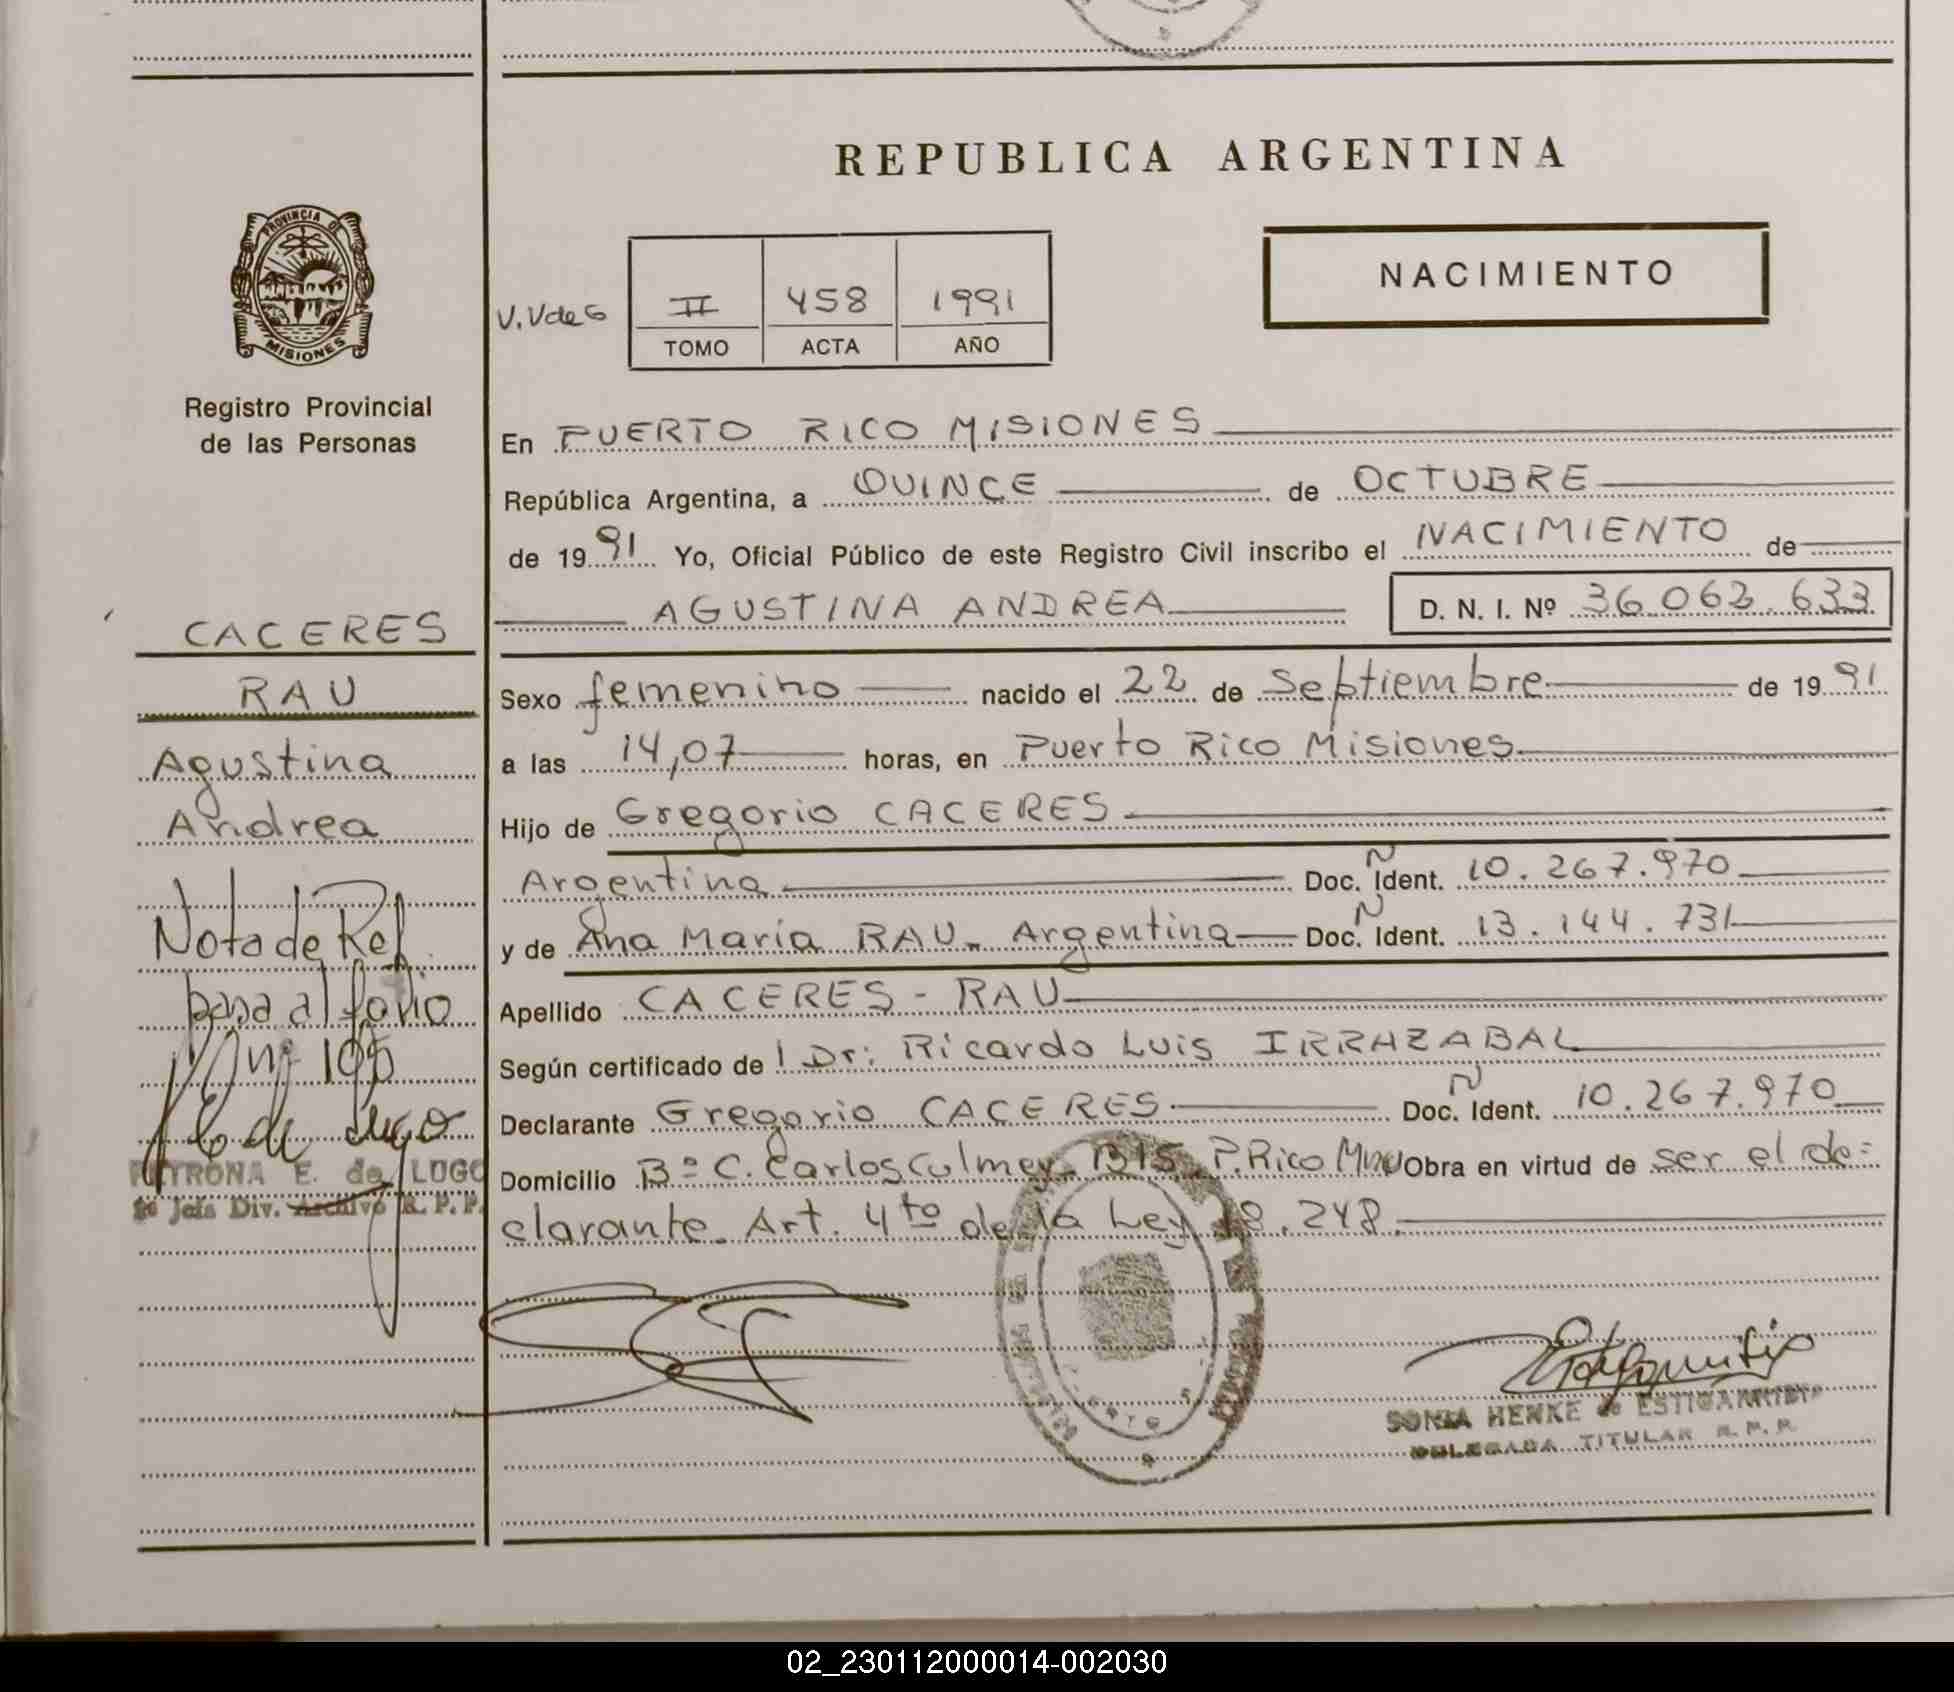 REPUBLICA ARGENTINA
PROVINCIA DE
MISIONES
Registro Provincial
de las Personas
NACIMIENTO
V. V de G
II 458 1991
TOMO ACTA AÑO
En PUERTO RICO MISIONES
República Argentina, a QUINCE de OCTUBRE
de 1991 Yo, Oficial Público de este Registro Civil inscribo el NACIMIENTO de
AGUSTINA ANDREA D. N. I. Nº 36 062.633
CACERES
RAU
Agustina
Andrea
Nota de Ref.
pasa al folio
Nº 195
PETRONA E. de LUGO
2º Jefe Div. Archivo R. P. P.
Sexo femenino nacido el 22 de Septiembre de 1991
a las 14,07 horas, en Puerto Rico Misiones
Hijo de Gregorio CACERES
Argentina Doc. Ñ Ident. 10.267.970
y de Ana María RAU. Argentina Doc. Ñ Ident. 13.144.731
Apellido CACERES - RAU
Según certificado de l Dr: Ricardo Luis IRRAZABAL
Declarante Gregorio CACERES Doc. Ñ Ident. 10.267.970
Domicilio Bº C. Carlos Culmey. B15. P.Rico Mnes Obra en virtud de ser el de=
clarante. Art. 4to de la Ley 18.248.
SONIA HENKE de ESTIGARRIBIA
DELEGADA TITULAR R. P. P.
02_230112000014-002030